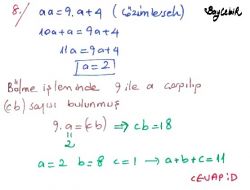 8./ aa = 9.a+4 (Çözümlersek) BayÇebir
10a+a = 9a+4
11a = 9a+4
a = 2
Bölme işleminde 9 ile a çarpılıp
(cb) sayısı bulunmuş
9.a = (cb) ⇒ cb = 18
2
a = 2 b = 8 c = 1 → a+b+c = 11
CEVAP: D